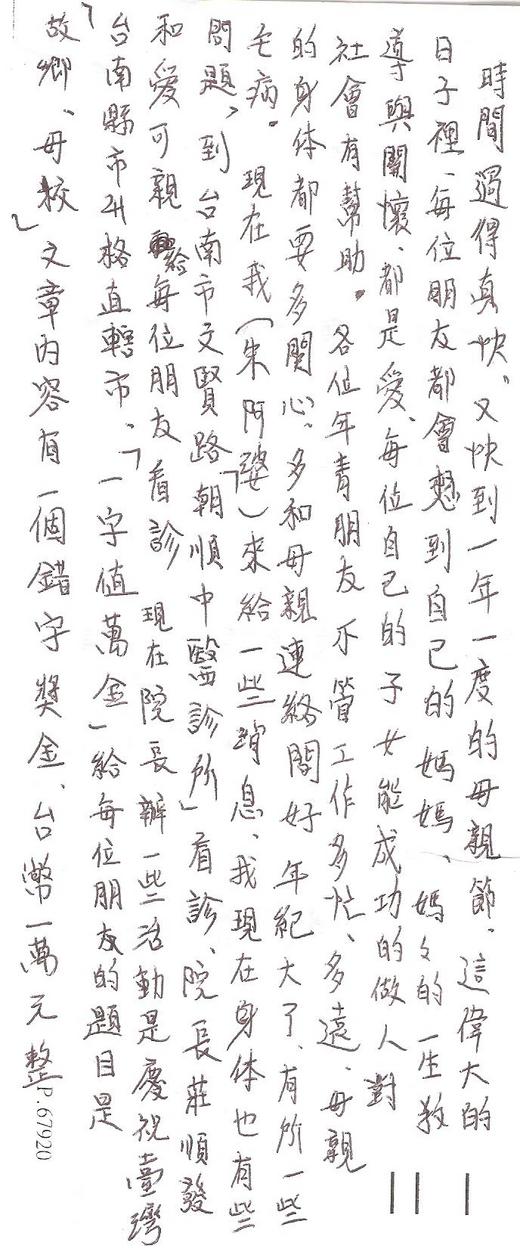 時間過得真快，又快到一年一度的母親節、這偉大的
日子裡、每位朋友都會想到自己的媽媽、媽々的一生教
導與關懷、都是愛、每位自己的子女能成功的做人對
社會有幫助。各位年青朋友不管工作多忙、多遠、母親
的身体都要多関心。多和母親連絡問好年紀大了、有所一些
毛病。現在我(朱阿婆)來給一些消息、我現在身体也有些
問題、到台南市文賢路「朝順中醫診所」看診、院長莊順發
和愛可親給每位朋友看診 現在院長辦一些活動是慶祝臺灣
台南縣市升格直轄市、「一字值萬金」給每位朋友的題目是
「故鄉、母校」文章內容有一個錯字獎金、台幣一萬元整
P.67920